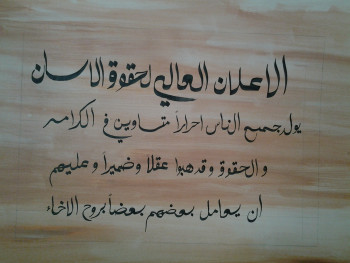 الاعلان العالمي لحقوق الانسان
يولد جميع الناس احراراً متساوين في الكرامه
والحقوق وقد وهبوا عقلا وضميراً وعليهم
أن يعامل بعضهم بعضاً بروح الاخاء